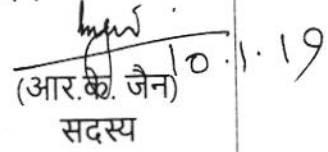 10.1.19
(आर.के. जैन)
सदस्य